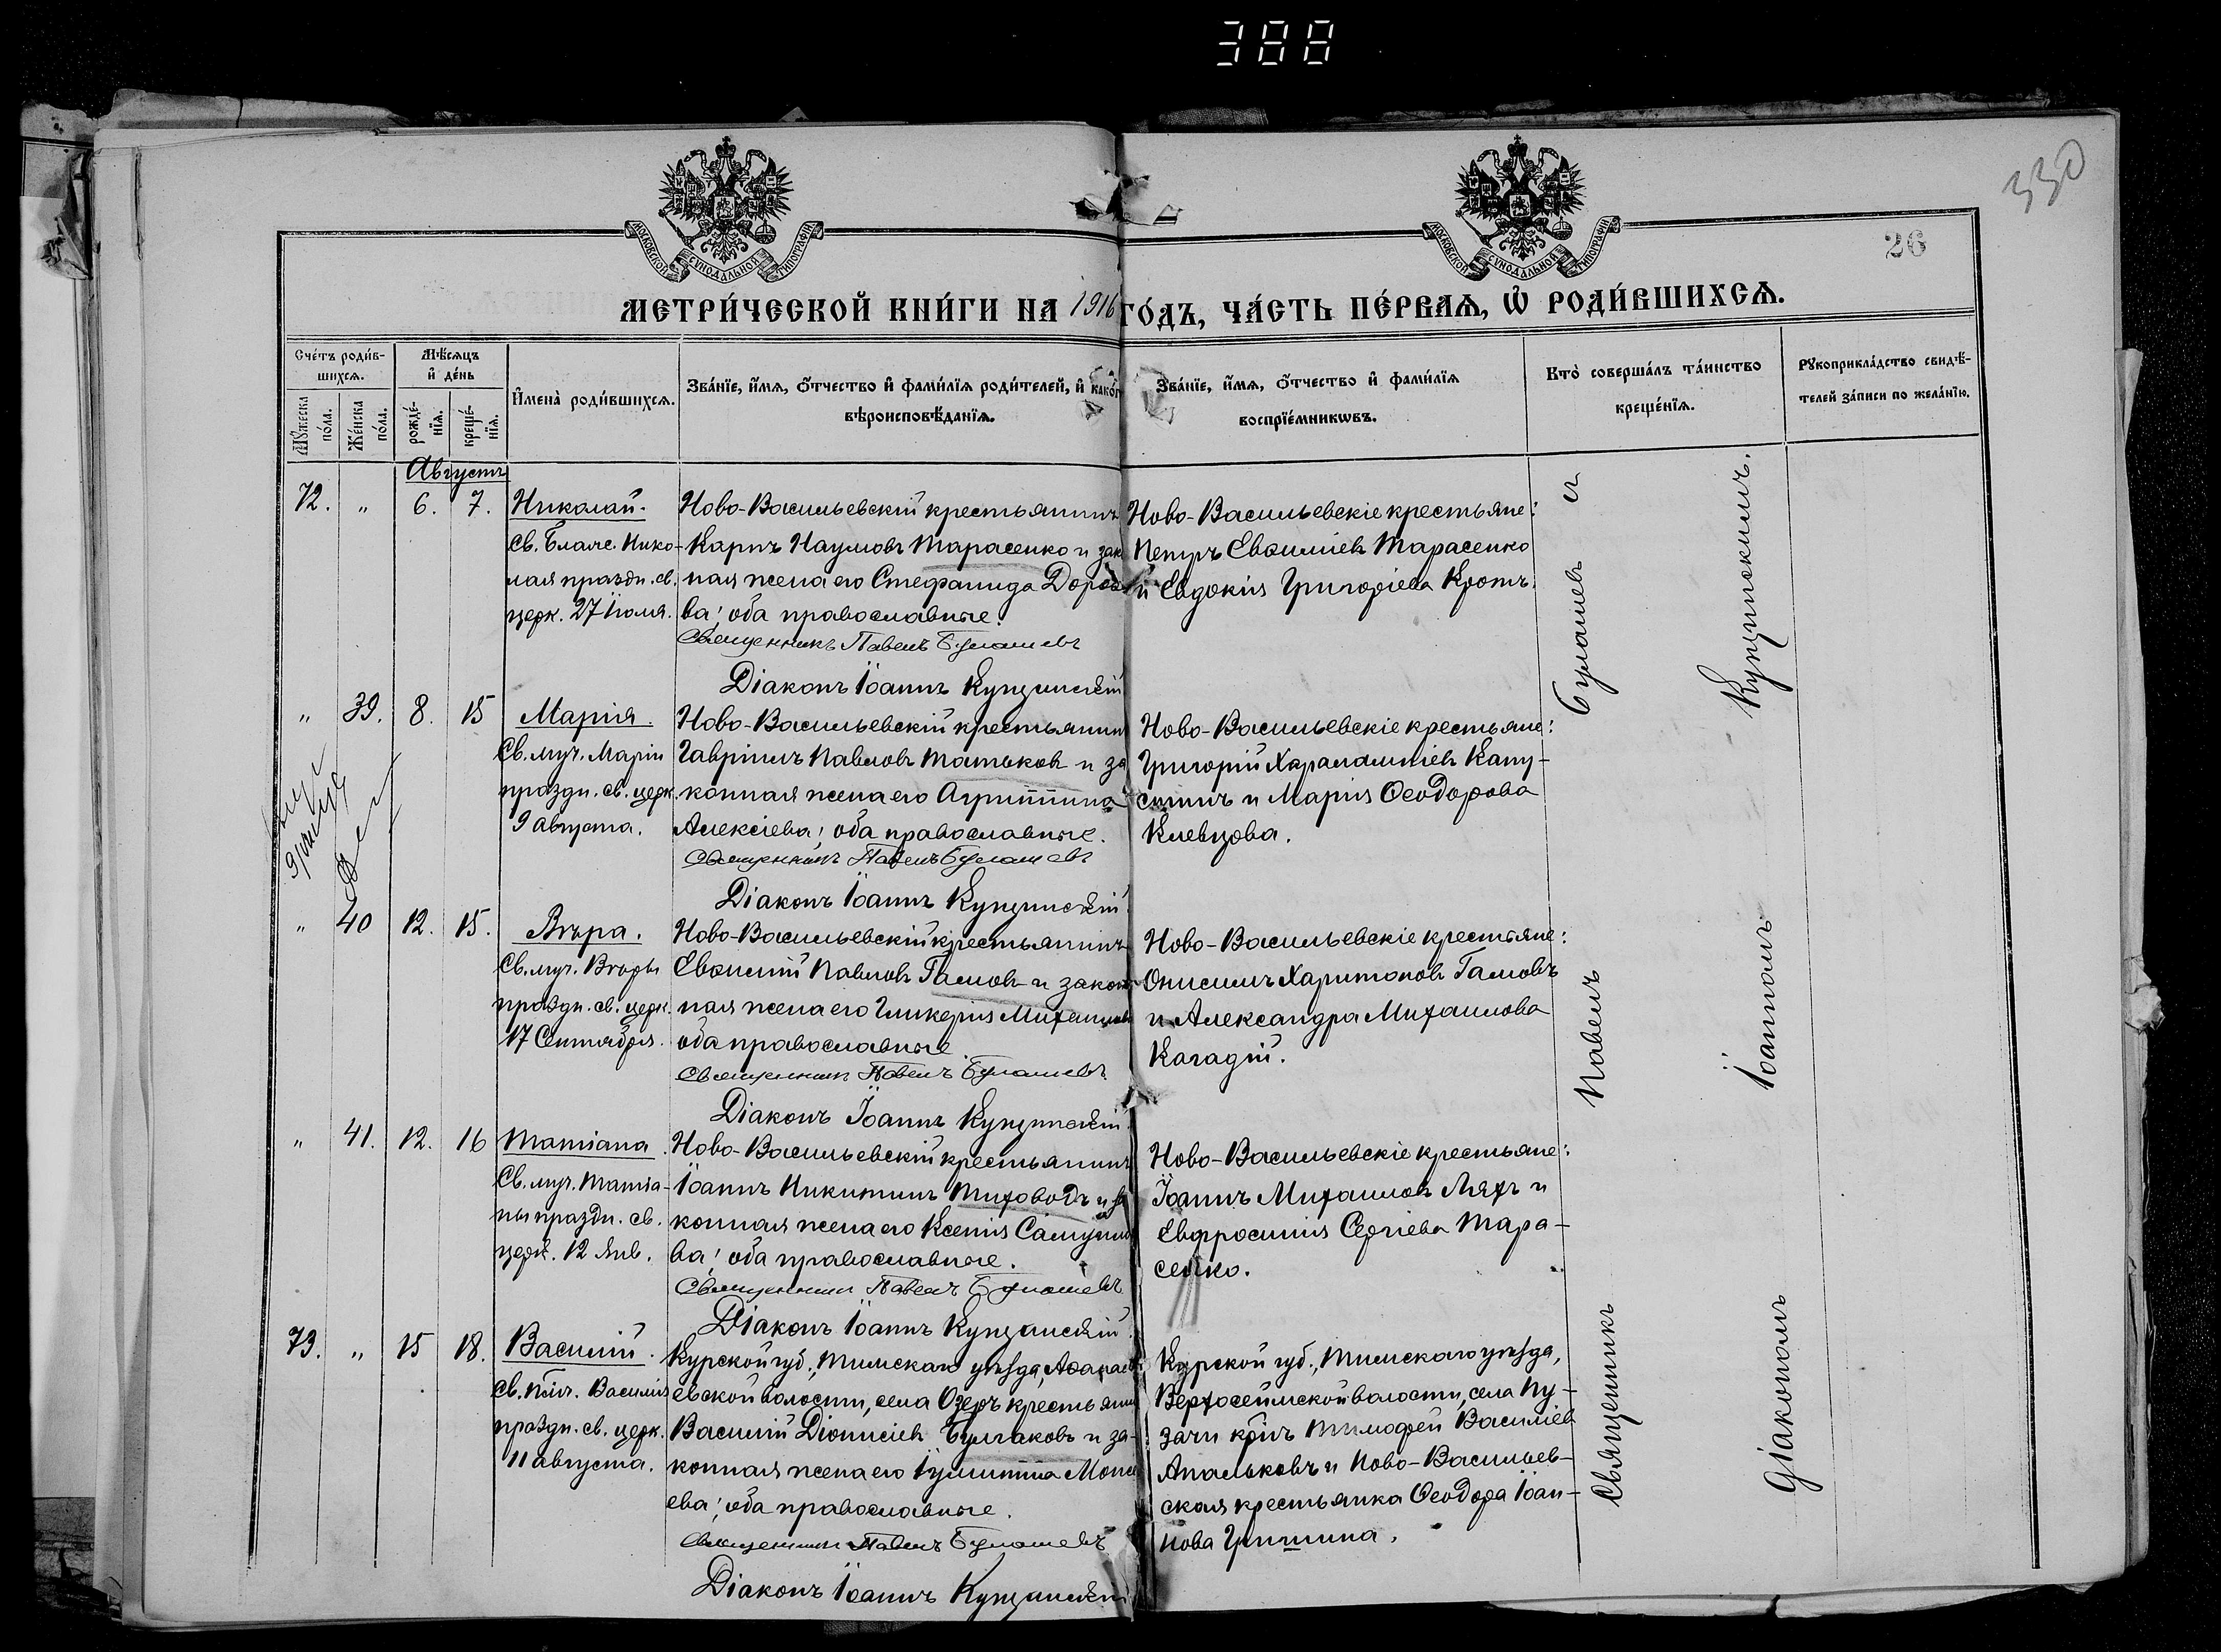 388
330
26
МОСКОВСКОЙ СѴНОДАЛЬНОЙ ТИПОГРАФІИ
МОСКОВСКОЙ СѴНОДАЛЬНОЙ ТИПОГРАФІИ
МЕТРИ́ЧЕСКОЙ КНИ́ГИ НА 1916 ГО́ДЪ, ЧА́СТЬ ПЕ́РВАѦ, Ѽ РОДИ́ВШИХСѦ.
Сче́тъ роди́в-
шихсѧ.
Мꙋ́жеска по́ла.
Же́нска по́ла.
Мѣ́сѧцъ и҆ де́нь
рожде́-нїѧ.
креще́-нїѧ.
И҆мена̀ роди́вшихсѧ.
Зва́нїе, и҆́мѧ, ѻ҆́тчество и҆ фами́лїѧ роди́телей, и҆ како́г
вѣроисповѣ́данїѧ.
Зва́нїе, и҆́мѧ, ѻ҆́тчество и҆ фами́лїѧ
воспрїе́мникѡвъ.
Кто̀ соверша́лъ та́инство
креще́нїѧ.
Рꙋкоприкла́дство свидѣ́-
телей за́писи по жела́нїю.
Августъ
72. " 6. 7. Николай.
Св. Благв. Нико-
лая праздн. св.
церк. 27 Іюля.
Ново-Васильевскій крестьянинъ
Карпъ Наумовъ Тарасенко и зак
ная жена его Стефанида Доро
ва; оба православные.
Священникъ Павелъ Булашевъ
Діаконъ Іоаннъ Кунцинскій
Ново-Васильевскіе крестьяне:
Петръ Евѳиміевъ Тарасенко
и Евдокія Григоріева Кротъ.
" 39. 8. 15 Марія.
Св. муч. Маріи
праздн. св. церк.
9 августа.
Ново-Васильевскій крестьянин
Гавріилъ Павловъ Татьковъ и за
конная жена его Агриппина
Алексіева; оба православные.
Священникъ Павелъ Булашевъ
Діаконъ Іоаннъ Кунцинскій.
Ново-Васильевскіе крестьяне:
Григорій Харалампіевъ Капу-
стинъ и Марія Ѳеодорова
Клевцова.
" 40 12. 15. Вѣра.
Св. муч. Вѣры
праздн. св. церк.
17 Сентября.
Ново-Васильевскій крестьянинъ
Евѳимій Павловъ Гамовъ и закон
ная жена его Гликерія Михаилова
оба православные.
Священникъ Павелъ Булашевъ
Діаконъ Іоаннъ Кунцинскій.
Ново-Васильевскіе крестьяне:
Онисимъ Харитоновъ Гамовъ
и Александра Михаилова
Кагадій.
" 41. 12. 16 Татіана.
Св. муч. Татіа-
ны праздн. св.
церк. 12 Янв.
Ново-Васильевскій крестьянинъ
Іоаннъ Никитинъ Тиховодъ и за
конная жена его Ксенія Самуило
ва; оба православные.
Священникъ Павелъ Булашевъ
Діаконъ Іоаннъ Кунцинскій.
Ново-Васильевскіе крестьяне:
Іоаннъ Михаиловъ Ляхъ и
Евфросинія Сергіева Тара-
сенко.
73. " 15 18. Василій.
Св. Василія
праздн. св. церк.
11 августа.
Курской губ., Тимскаго уѣзда, Аѳанась
евской волости, села Озеръ крестьянин
Василій Діонисіевъ Булгаковъ и за-
конная жена его Іулиттa Моисе
ева; оба православные.
Священникъ Павелъ Булашевъ
Діаконъ Іоаннъ Кунцинскій
Курской губ., Тимскаго уѣзда,
Верхосеймской волости, села Пу-
зачи крнъ Тимофей Василіевъ
Апальковъ и Ново-Васильев-
ская крестьянка Ѳеодора Іоан-
нова Гришина.
Священникъ Павелъ Булашевъ и
Діакономъ Іоанномъ Кунцинскимъ.